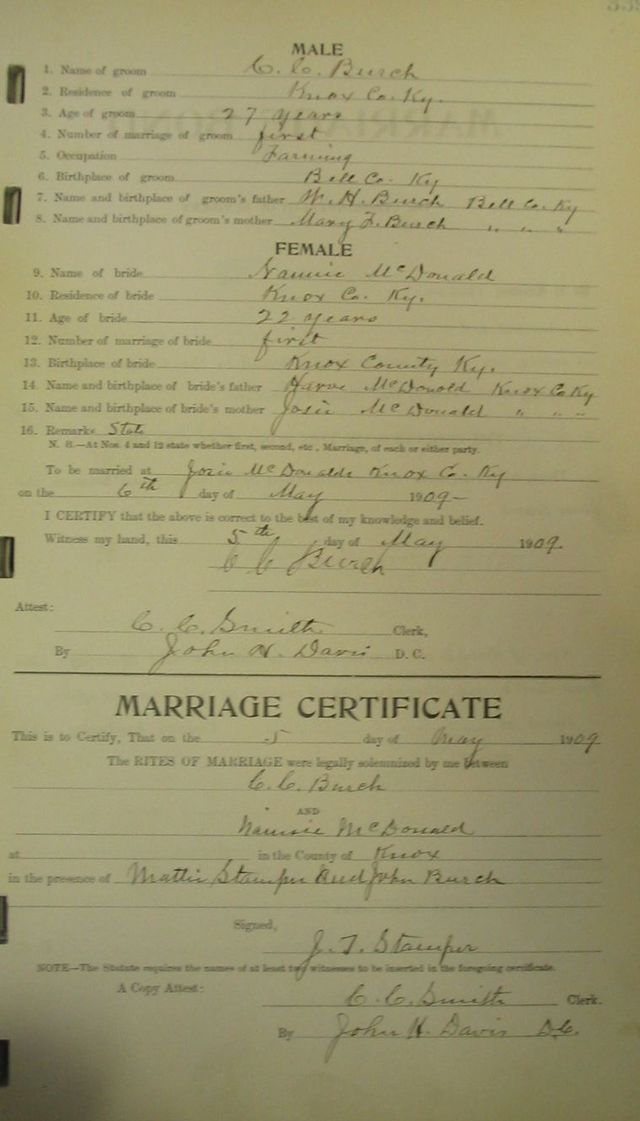 MALE
1. Name of groom C. C. Burch
2. Residence of groom Knox Co. Ky.
3. Age of groom 27 years
4. Number of marriage of groom first
5. Occupation Farming
6. Birthplace of groom Bell Co. Ky
7. Name and birthplace of groom's father W. H. Burch Bell Co. Ky
8. Name and birthplace of groom's mother Mary F. Burch " " "
FEMALE
9. Name of bride Nannie McDonald
10. Residence of bride Knox Co. Ky.
11. Age of bride 22 years
12. Number of marriage of bride first
13. Birthplace of bride Knox County Ky.
14. Name and birthplace of bride's father Harve McDonold Knox Co Ky
15. Name and birthplace of bride's mother Josie McDonald " " "
16. Remarks State
N. B.—At Nos. 4 and 12 state whether first, second, etc., Marriage, of each or either party.
To be married at Josie McDonalds Knox Co. Ky
on the 6th day of May 1909-
I CERTIFY that the above is correct to the best of my knowledge and belief.
Witness my hand, this 5th day of May 1909.
C C Burch
Attest:
C. C. Smith Clerk,
By John H. Davis D. C.
MARRIAGE CERTIFICATE
This is to Certify, That on the 5 day of May 1909
The RITES OF MARRIAGE were legally solemnized by me between
C. C. Burch
AND
Nannie McDonald
at in the County of Knox
in the presence of Mattie Stamper And John Burch
Signed,
J. T. Stamper
NOTE—The Statute requires the names of at least two witnesses to be inserted in the foregoing certificate.
A Copy Attest:
C. C. Smith Clerk.
By John H. Davis D.C.